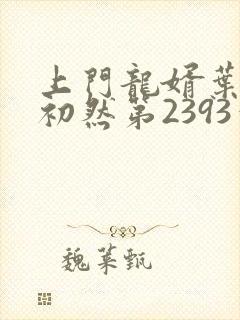 上門龍婿葉
初然第2393
魏葉甄